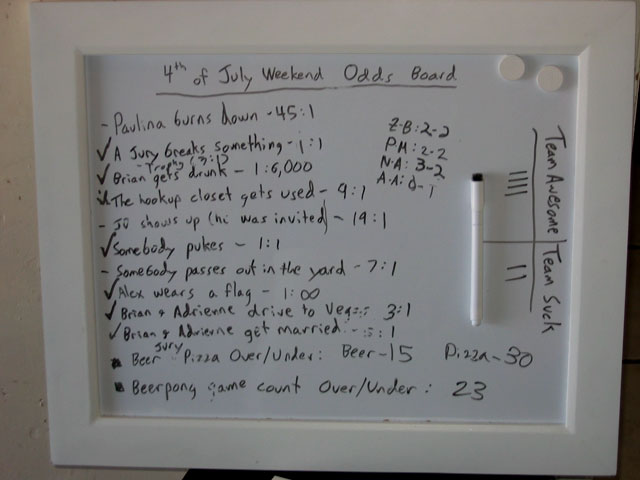 4th of July Weekend Odds Board
- Paulina burns down - 45:1
✓ A Jury breaks something - 1:1
- Trophy (3:1)
✓ Brian gets drunk - 1:6,000
The hookup closet gets used - 9:1
- JJ shows up (he was invited) - 19:1
✓ Somebody pukes - 1:1
- Somebody passes out in the yard - 7:1
✓ Alex wears a flag - 1:00
✓ Brian & Adrienne drive to Vegas 3:1
✓ Brian & Adrienne get married - 5:1
Beer Jury Pizza Over/Under: Beer - 15 Pizza - 30
Beerpong game count Over/Under: 23
Z-B: 2-2
PM: 2-2
N-A: 3-2
A-A: 0-1
Team Awesome
Team Suck